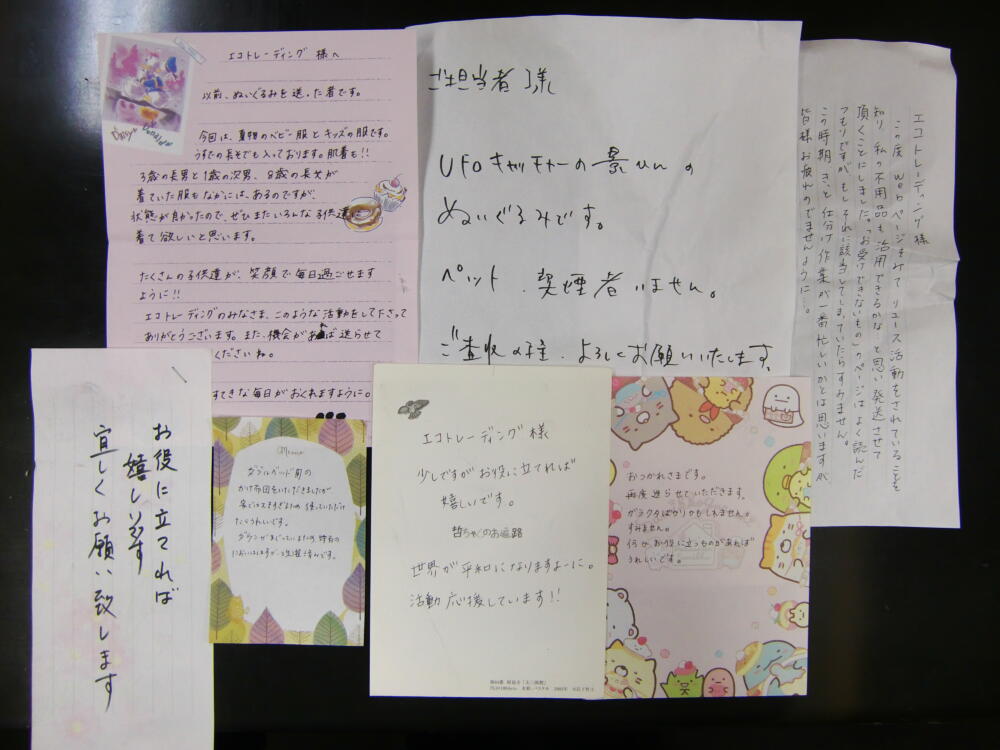 エコトレーディング 様へ
以前、ぬいぐるみを送った者です。
今回は、夏物のベビー服とキッズの服です。
うすでの長そでも入っております。肌着も!!
3歳の長男と1歳の次男、8歳の長女が
着ていた服もなかには、あるのですが、
状態が良かったので、ぜひまたいろんな子供達に
着て欲しいと思います。
たくさんの子供達が、笑顔で毎日過ごせます
ように!!
エコトレーディングのみなさま、このような活動をして下さって
ありがとうございます。また、機会があれば送らせて
くださいね。
すてきな毎日がおくれますように。
ご担当者様
UFOキャッチャーの景ひんの
ぬいぐるみです。
ペット、喫煙者いません。
ご査収の程、よろしくお願いいたします
エコトレーディング様
この度webページをみてリユース活動をされていることを
知り、私の不用品も活用できるかな、と思い発送させて
頂くことにしました。"お受けできないもの"のページはよく読んだ
つもりですが、もしそれに該当してしまっていたらすみません。
この時期、きっと仕分け作業が一番忙しいかとは思いますが、
皆様お疲れのでませんように…。
お役に立てれば
嬉しいです
宜しくお願い致します
Memo
ダブルベッド用の
かけ布団をいただきましたが
使っていただけ
たらうれしいです。
エコトレーディング様
少しですがお役に立てれば
嬉しいです。
哲ちゃんのお遍路
世界が平和になりますよーに。
活動応援しています!!
おつかれさまです。
再度送らせていただきます。
ガラクタばかりかもしれません。
すみません。
何か、お役に立つものがあれば
うれしいです。